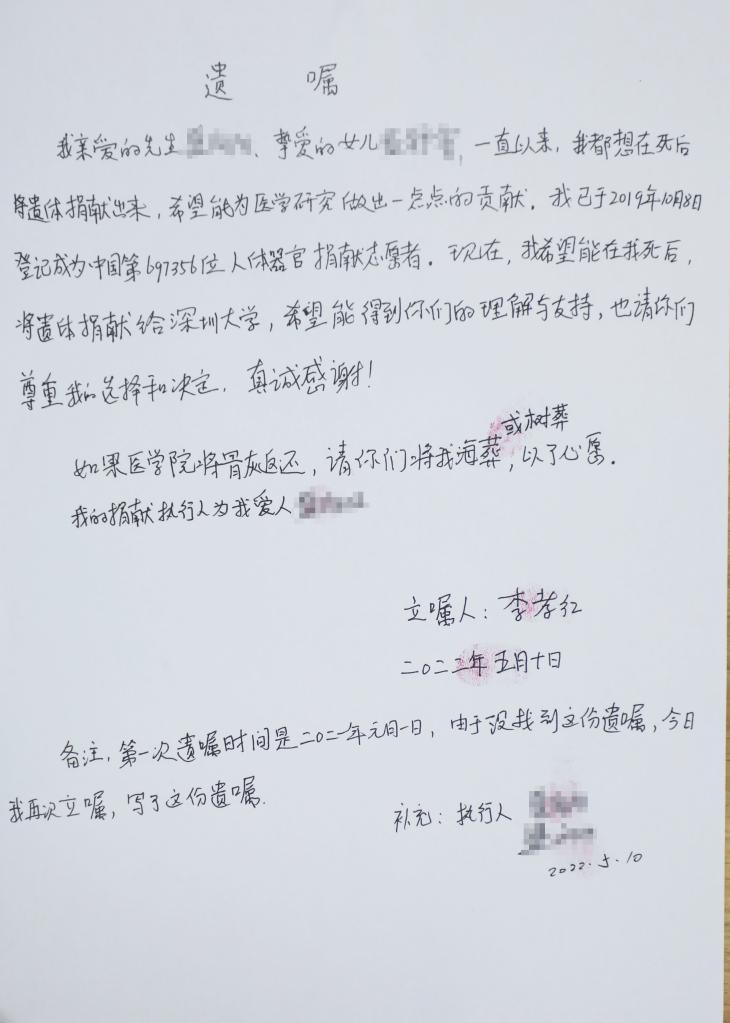 遗 嘱
我亲爱的先生、挚爱的女儿,一直以来,我都想在死后
将遗体捐献出来,希望能为医学研究做出一点点的贡献。我已于2019年10月8日
登记成为中国第697356位人体器官捐献志愿者。现在,我希望能在我死后,
将遗体捐献给深圳大学,希望能得到你们的理解与支持,也请你们
尊重我的选择和决定。真诚感谢!
或树葬
如果医学院将骨灰返还,请你们将我海葬,以了心愿。
我的捐献执行人为我爱人
立嘱人:李孝红
二〇二二年五月十日
备注,第一次遗嘱时间是二〇二一年元月一日,由于没找到这份遗嘱,今日
我再次立嘱,写了这份遗嘱.
补充:执行人
2022.5.10